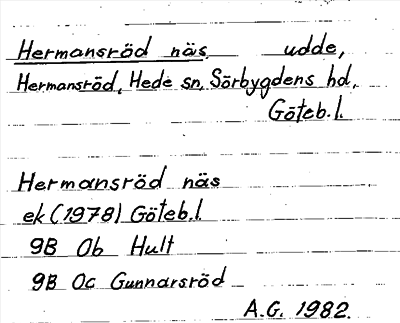 Hermansröd näs, udde,
Hermansröd, Hede sn, Sörbygdens hd,
Göteb.l.
Hermansröd näs
ek (1978) Göteb.l.
9B 0b Hult
9B 0c Gunnarsröd
A.G. 1982.